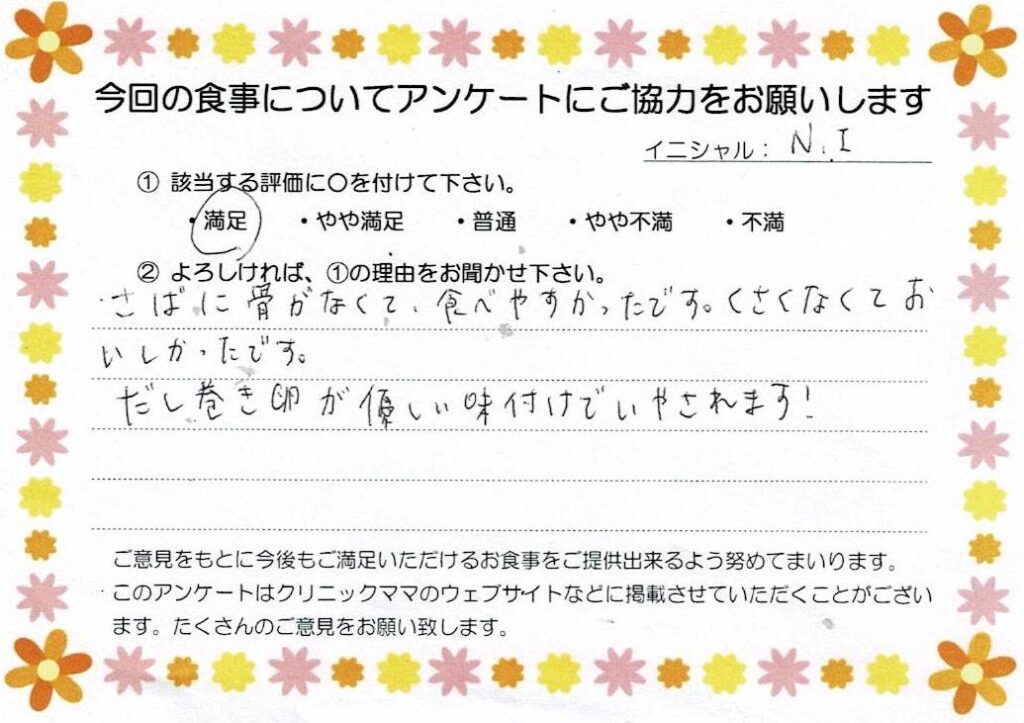 今回の食事についてアンケートにご協力をお願いします
イニシャル： N.I
① 該当する評価に〇を付けて下さい。
・満足 ・やや満足 ・普通 ・やや不満 ・不満
② よろしければ、①の理由をお聞かせ下さい。
さばに骨がなくて、食べやすかったです。くさくなくてお
いしかったです。
だし巻き卵が優しい味付けでいやされます！
ご意見をもとに今後もご満足いただけるお食事をご提供出来るよう努めてまいります。
このアンケートはクリニックママのウェブサイトなどに掲載させていただくことがござい
ます。たくさんのご意見をお願い致します。